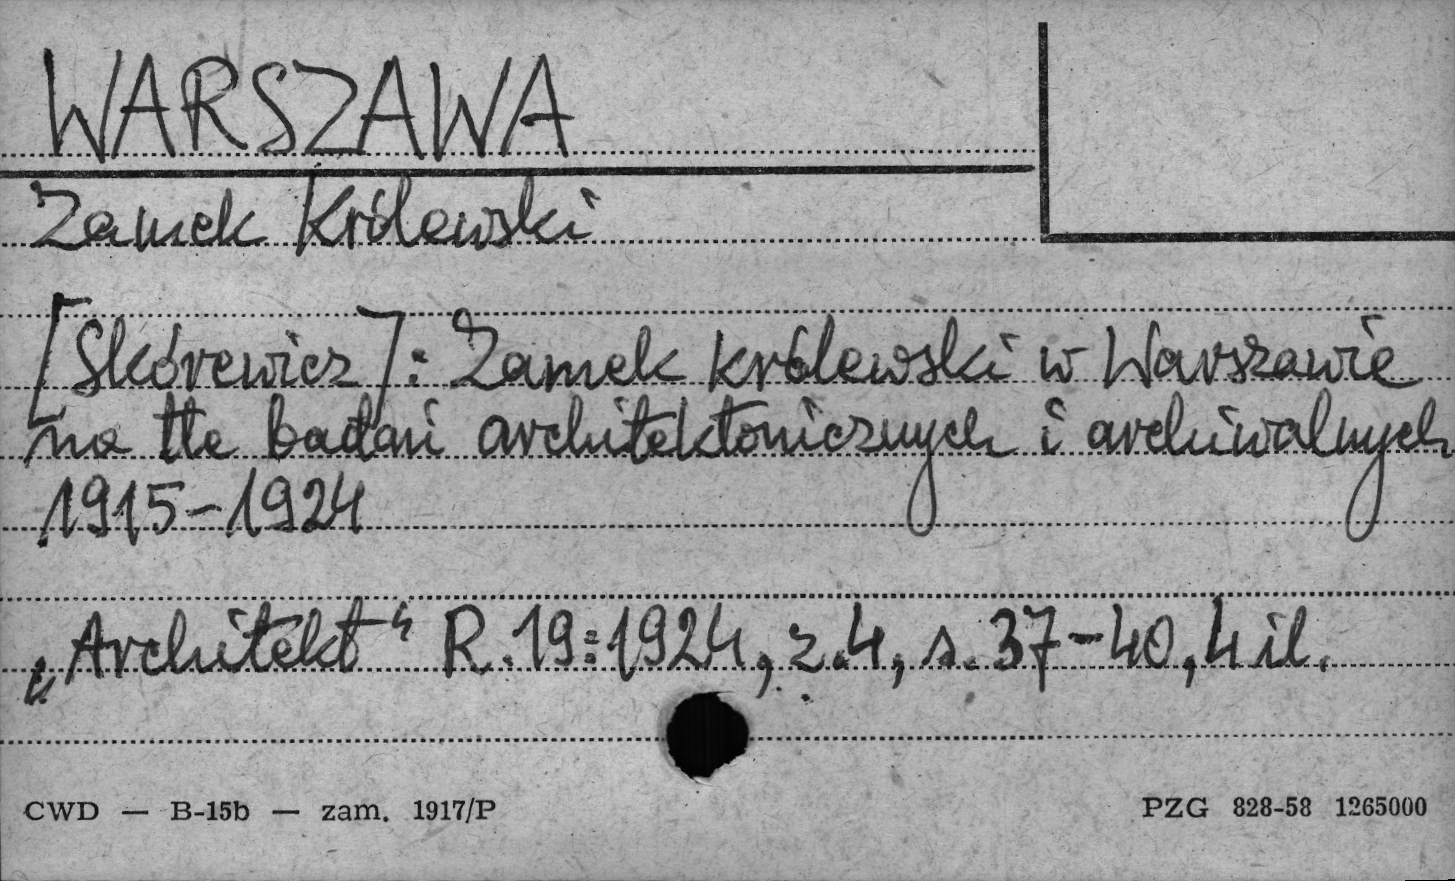 WARSZAWA
Zamek Królewski
[Skórewicz]: Zamek królewski w Warszawie
na tle badań architektonicznych i archiwalnych
1915-1924
„Architekt" R.19:1924, z.4, s.37-40, 4 il.
CWD — B-15b — zam. 1917/P
PZG 828-58 1265000